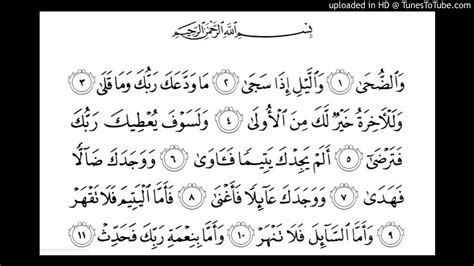 uploaded in HD @ TunesToTube.com
بِسْمِ ٱللَّهِ ٱلرَّحْمَٰنِ ٱلرَّحِيمِ
وَٱلضُّحَىٰ ١ وَٱلَّيْلِ إِذَا سَجَىٰ ٢ مَا وَدَّعَكَ رَبُّكَ وَمَا قَلَىٰ ٣
وَلَلْآخِرَةُ خَيْرٌ لَّكَ مِنَ ٱلْأُولَىٰ ٤ وَلَسَوْفَ يُعْطِيكَ رَبُّكَ
فَتَرْضَىٰ ٥ أَلَمْ يَجِدْكَ يَتِيمًا فَـَٔاوَىٰ ٦ وَوَجَدَكَ ضَآلًّا
فَهَدَىٰ ٧ وَوَجَدَكَ عَآئِلًا فَأَغْنَىٰ ٨ فَأَمَّا ٱلْيَتِيمَ فَلَا تَقْهَرْ
٩ وَأَمَّا ٱلسَّآئِلَ فَلَا تَنْهَرْ ١٠ وَأَمَّا بِنِعْمَةِ رَبِّكَ فَحَدِّثْ ١١